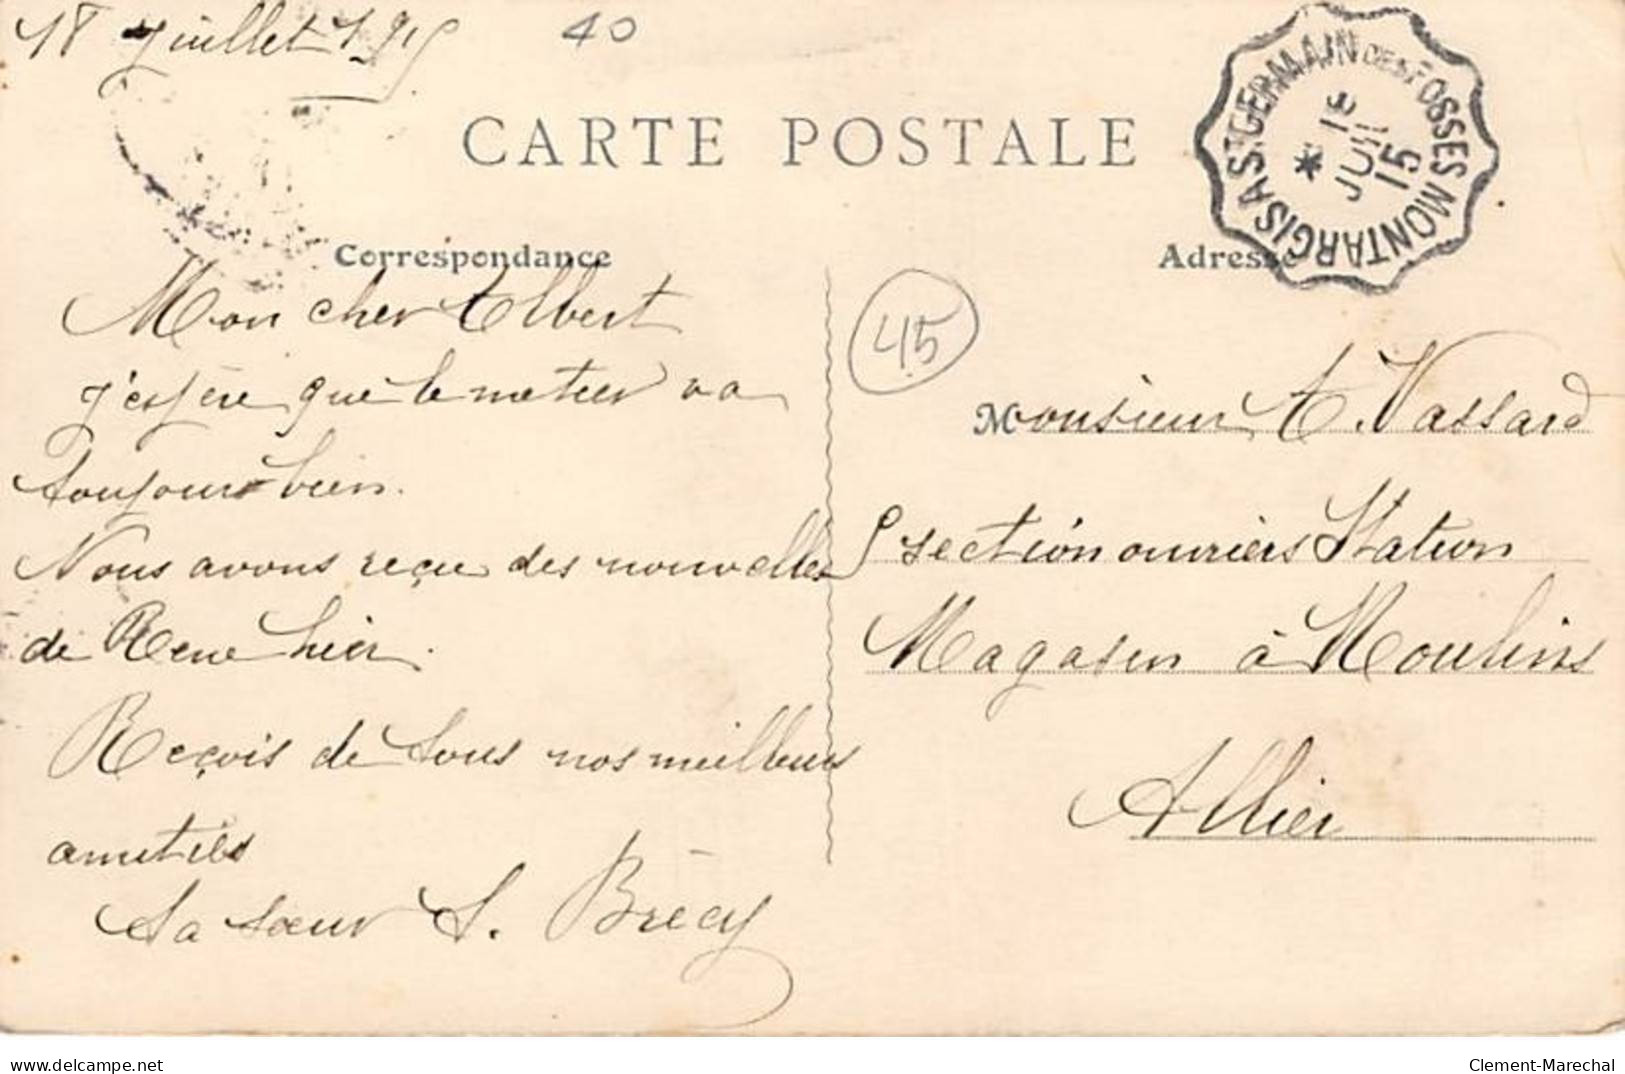 18 juillet 1915
40
CARTE POSTALE
MONTARGIS A ST GERMAIN DES FOSSES
JUIL
15
Correspondance
Adresse
Mon cher Albert
j'espère que le metier va
toujours bien.
Nous avons reçu des nouvelles
de Rene hier.
Reçois de tous nos meilleurs
amitiés
Ta soeur S. Brécy
45
Monsieur A. Vassard
section ouvriers Station
Magasin à Moulins
Allier
delcampe.net
Clement-Marechal